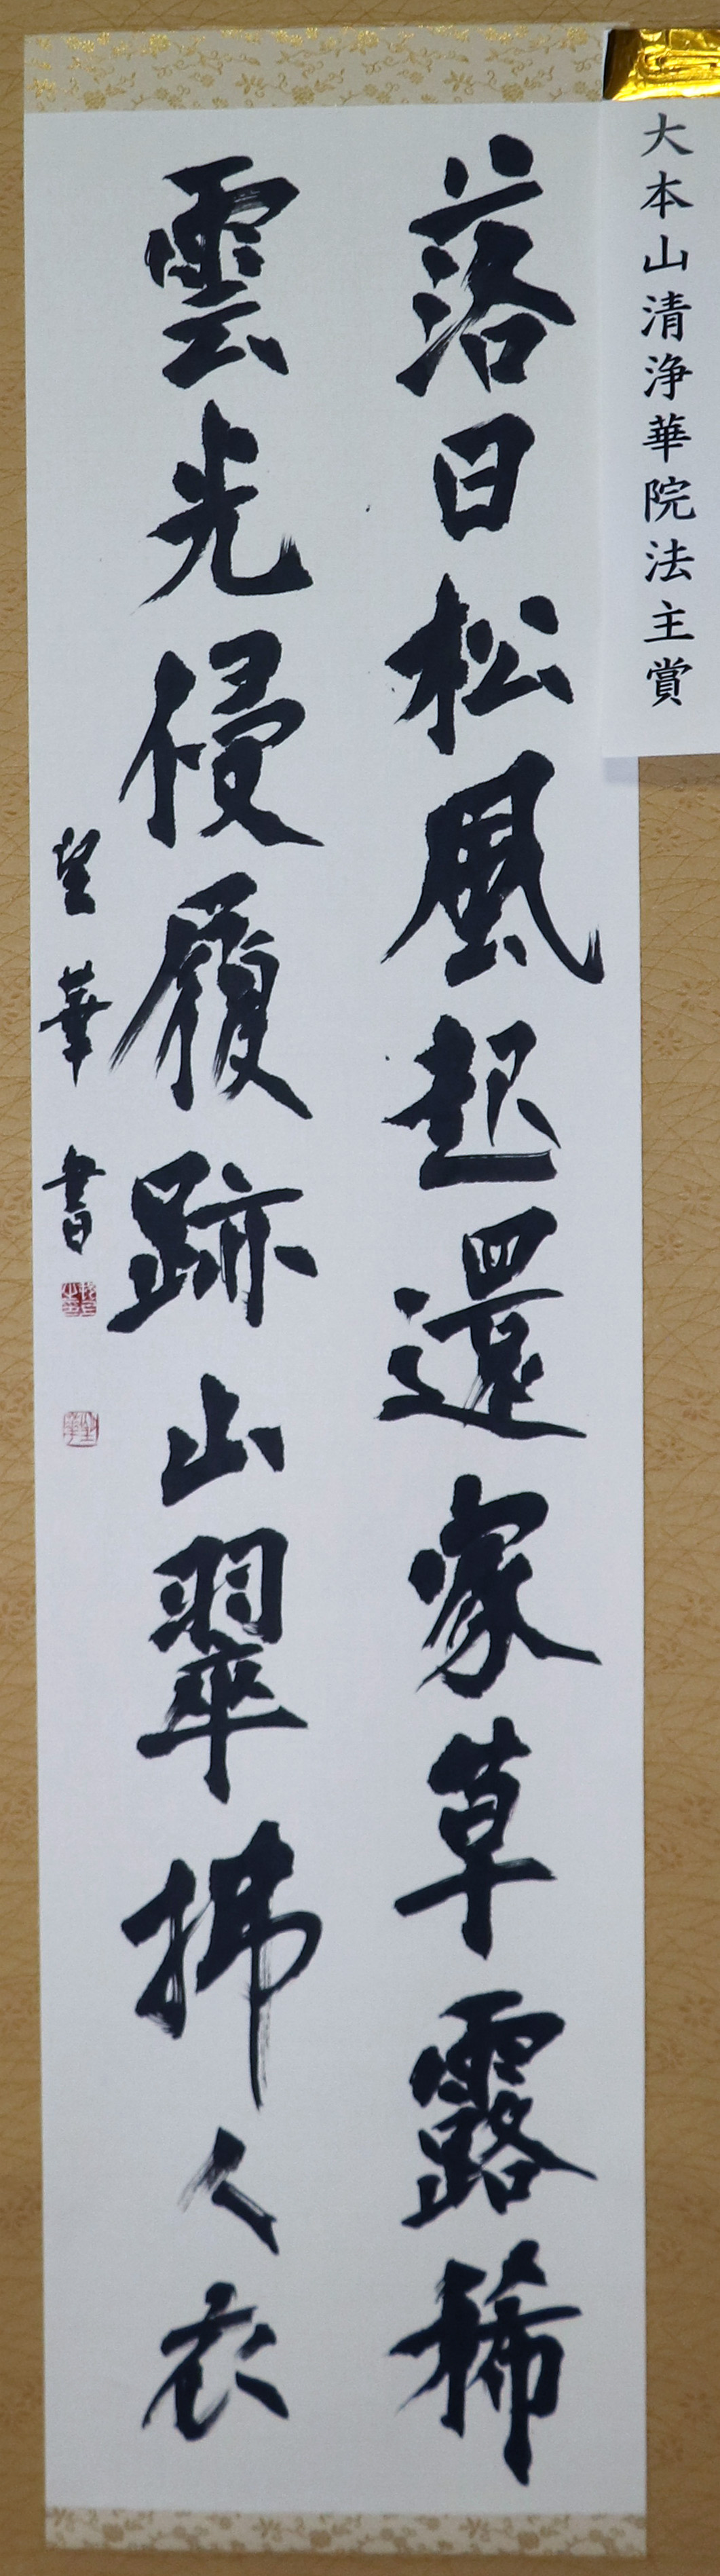 大本山清浄華院法主賞
落日松風起還家草露稀
雲光侵履跡山翠拂人衣
望華書